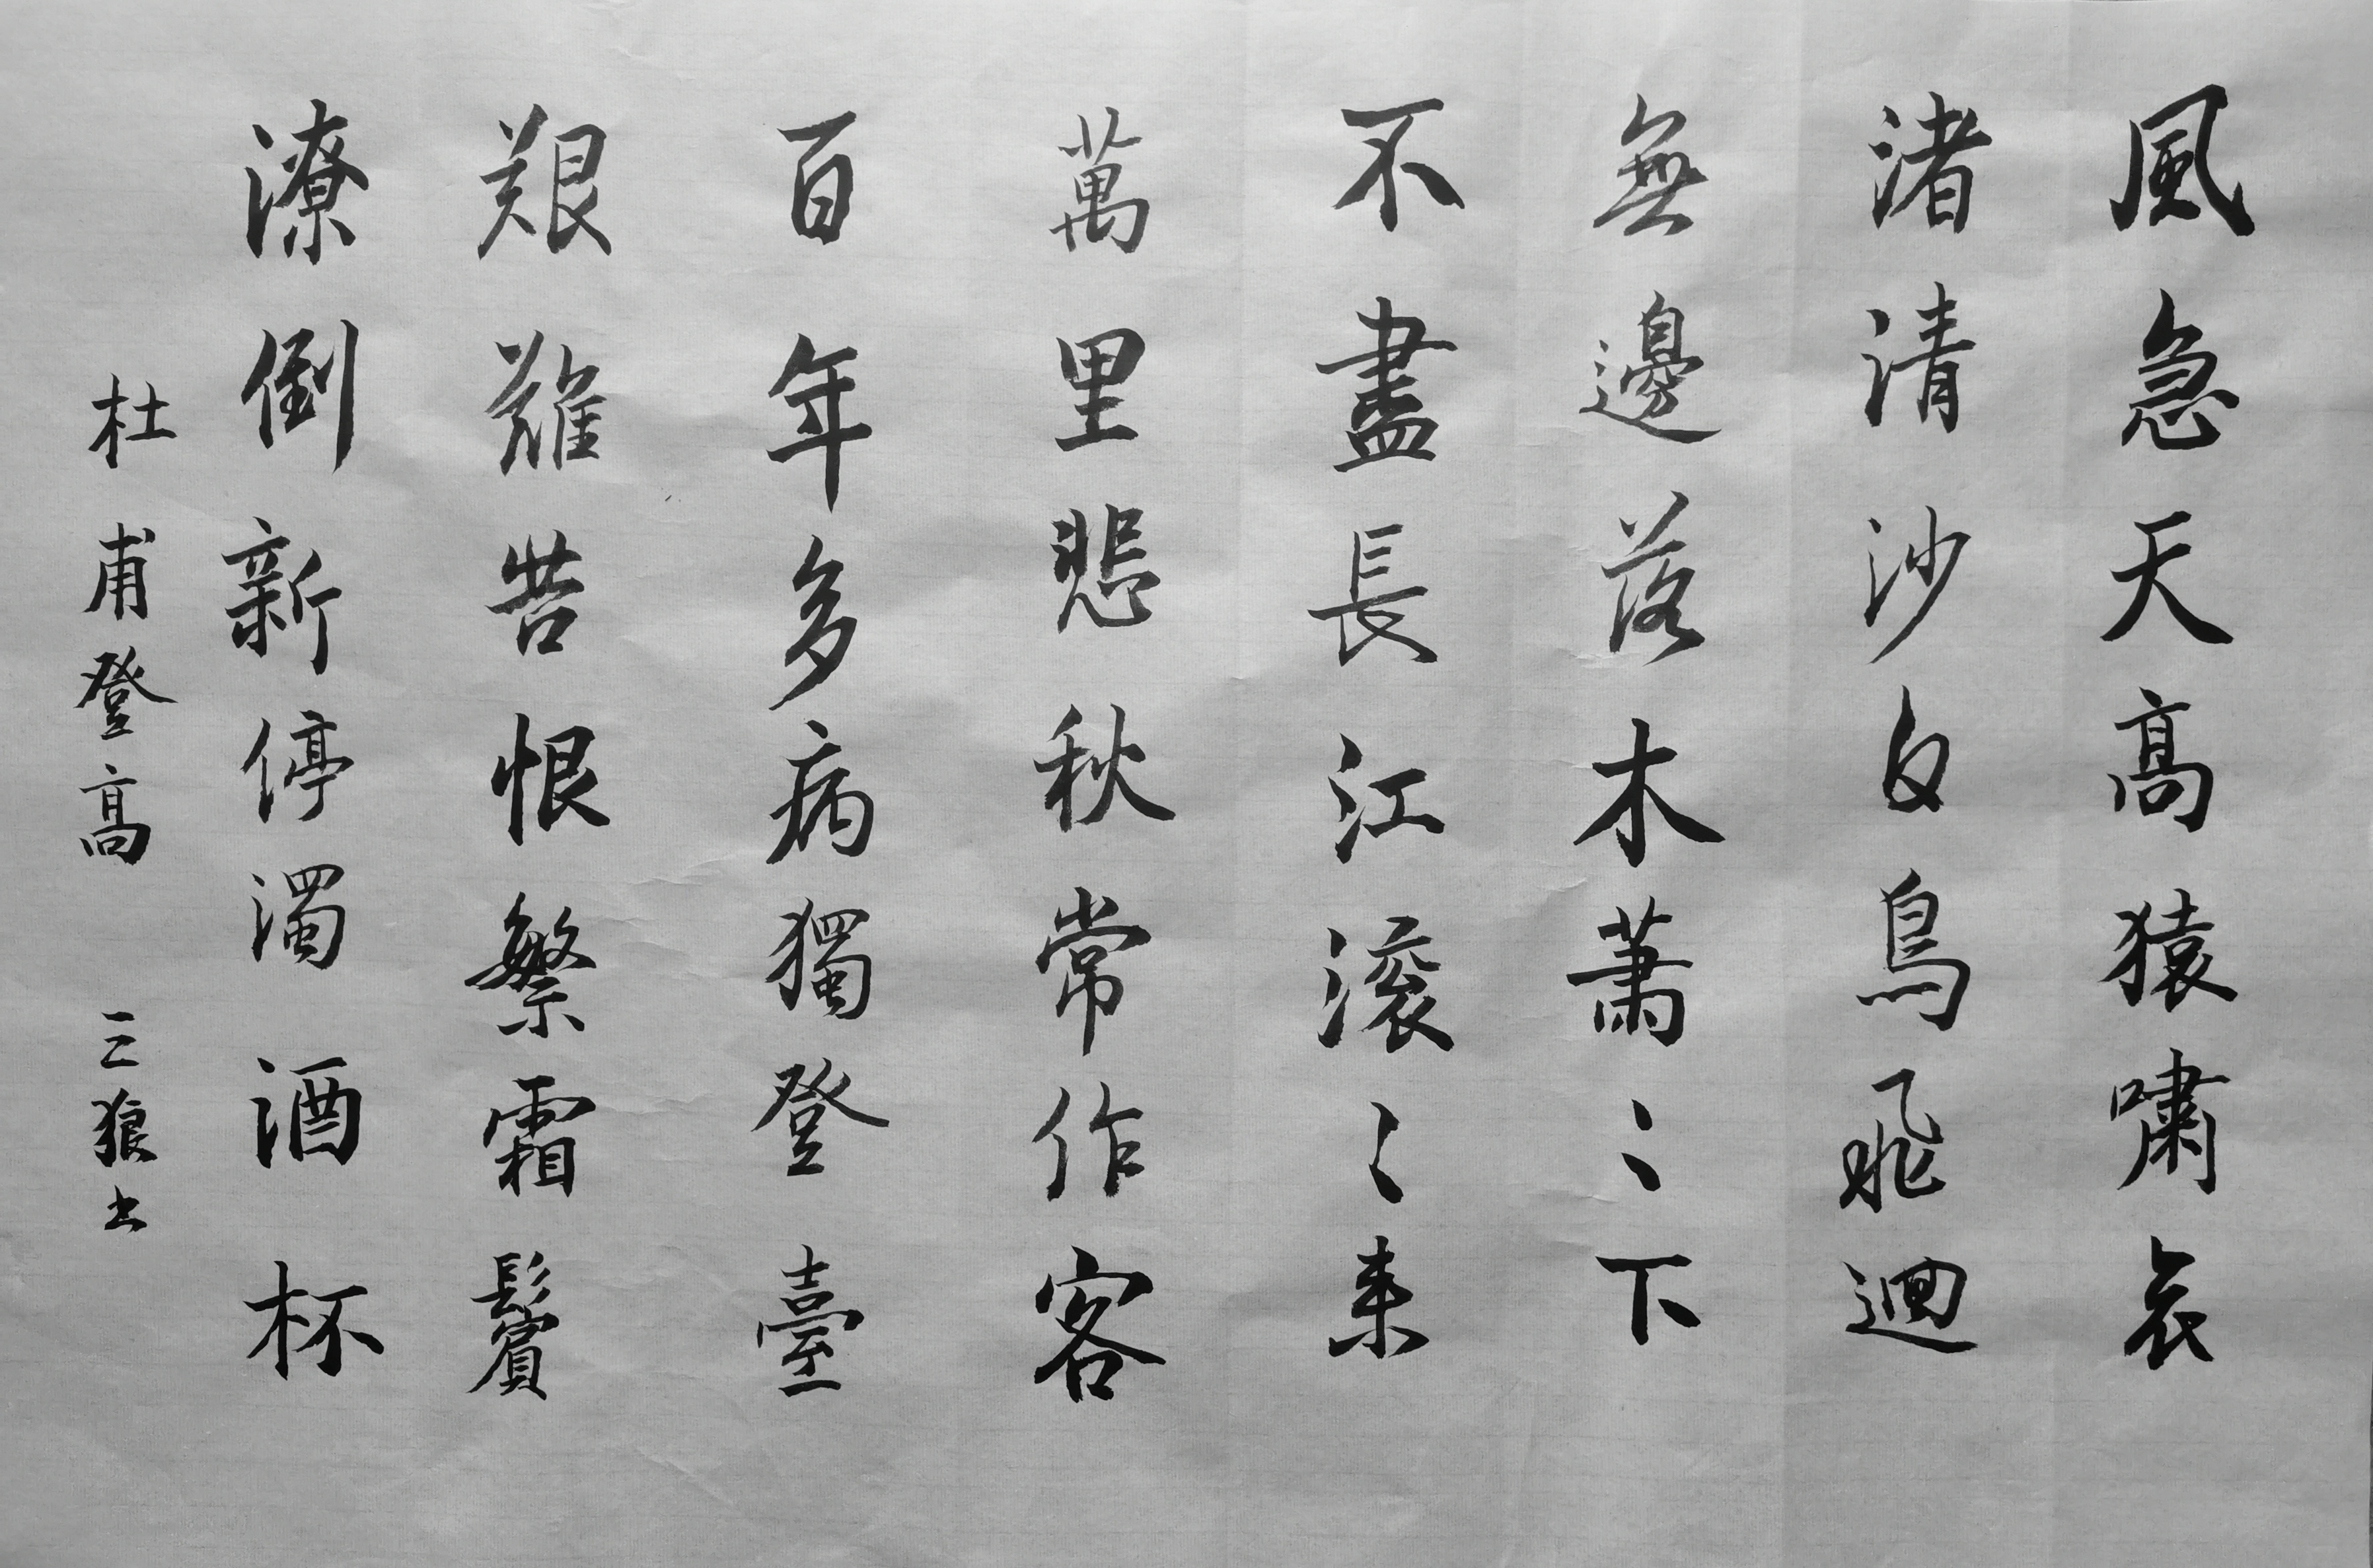 風急天高猿嘯哀
渚清沙白鳥飛迴
無邊落木蕭〻下
不盡長江滾〻来
萬里悲秋常作客
百年多病獨登臺
艱難苦恨繁霜鬢
潦倒新停濁酒杯
杜甫登高 三狼书